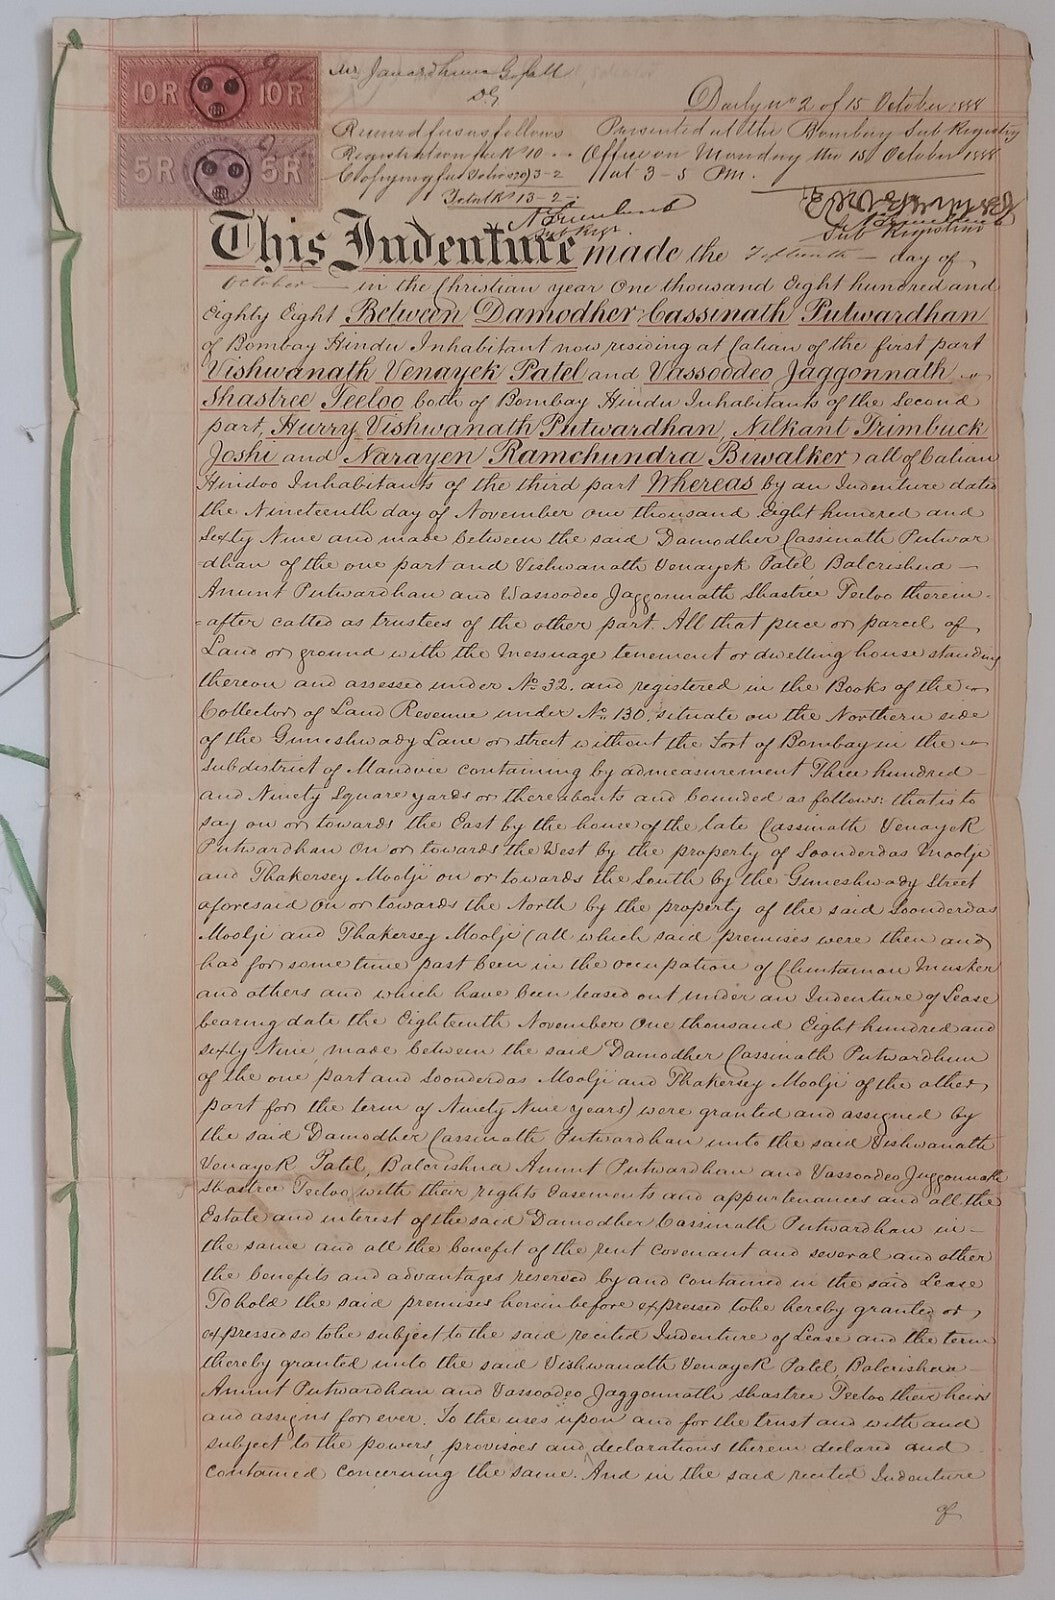 10R 10R
5R 5R
Daily No 2 of 15 October 1888
Received fees as follows
Registration fee R 10 . .
Copying fee Folios 3-2
Total R 13-2-
Sub Regr.
Presented at the Bombay Sub Registry
Office on Monday the 15 October 1888
at 3-5 P.M.
Sub Registrar
This Indenture made the Fifteenth day of
October in the Christian year One thousand Eight hundred and
Eighty Eight Between Damodher Cassinath Putwardhan
of Bombay Hindu Inhabitant now residing at Calian of the first part
Vishwanath Venayek Patel and Vassoodeo Jaggonnath
Shastree Teeloo both of Bombay Hindu Inhabitants of the Second
part, Hurry Vishwanath Putwardhan, Nilkant Trimbuck
Joshi and Narayen Ramchundra Biwalker, all of Calian
Hindoo Inhabitants of the third part Whereas by an Indenture dated
the Nineteenth day of November one thousand Eight hundred and
Sixty Nine and made between the said Damodher Cassinath Putwar
-dhan of the one part and Vishwanath Venayek Patel, Balcrishna
Anunt Putwardhan and Vassoodeo Jaggonnath Shastree Teeloo therein-
-after called as trustees of the other part. All that piece or parcel of
Land or ground with the Messuage tenement or dwelling house standing
thereon and assessed under No. 32. and registered in the Books of the
Collector of Land Revenue under No. 130, situate on the Northern side
of the Guneshwady Lane or street without the Fort of Bombay in the
subdistrict of Mandvie containing by admeasurement Three hundred
and Ninety Square yards or thereabouts and bounded as follows: that is to
say on or towards the East by the house of the late Cassinath Venayek
Putwardhan On or towards the West by the property of Soonderdas Moolji
and Thakersey Moolji on or towards the South by the Guneshwady Street
aforesaid On or towards the North by the property of the said Soonderdas
Moolji and Thakersey Moolji (all which said premises were then and
had for some time past been in the occupation of Chintamon Musker
and others and which have been leased out under an Indenture of Lease
bearing date the Eighteenth November One thousand Eight hundred and
sixty Nine, made between the said Damodher Cassinath Putwardhun
of the one part and Soonderdas Moolji and Thakersey Moolji of the other
part for the term of Ninety Nine years) were granted and assigned by
the said Damodher Cassinath Putwardhan unto the said Vishwanath
Venayek Patel, Balcrishna Anunt Putwardhan and Vassoodeo Juggonnath
Shastree Teeloo with their rights Easements and appurtenances and all the
Estate and interest of the said Damodher Cassinath Putwardhan in
the same and all the benefit of the rent covenant and several and other
the benefits and advantages reserved by and contained in the said Lease
To hold the said premises herein before expressed to be hereby granted or
expressed so to be subject to the said recited Indenture of Lease and the term
thereby granted unto the said Vishwanath Venayek Patel, Balcrishna
Anunt Putwardhan and Vassoodeo Jaggonnath Shastree Teeloo their heirs
and assigns for ever. To the uses upon and for the trust and with and
subject to the powers, provisoes and declarations therein declared and
contained concerning the same. And in the said recited Indenture
of